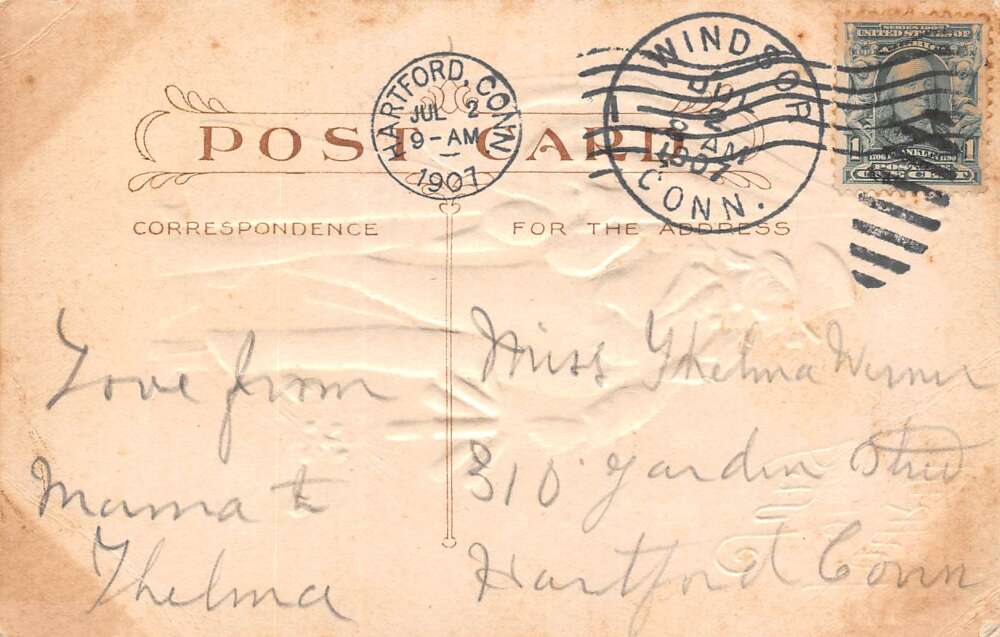 HARTFORD, CONN.
JUL 2
9-AM
1907
WINDSOR
JUL
2
8 AM
1907
CONN.
SERIES 1902
UNITED STATES OF
AMERICA
1 1
1706 FRANKLIN 1790
POSTAGE
ONE CENT
POST CARD
CORRESPONDENCE
FOR THE ADDRESS
Love from
Mama to
Thelma
Miss Thelma Werner
310 Garden Street
Hartford Conn